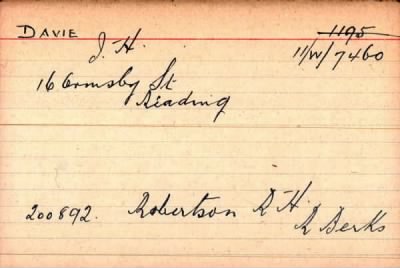 DAVIE J. H. 1195
11/W/7460
16 Ormsby St
Reading
200892. Robertson R H.
R Berks